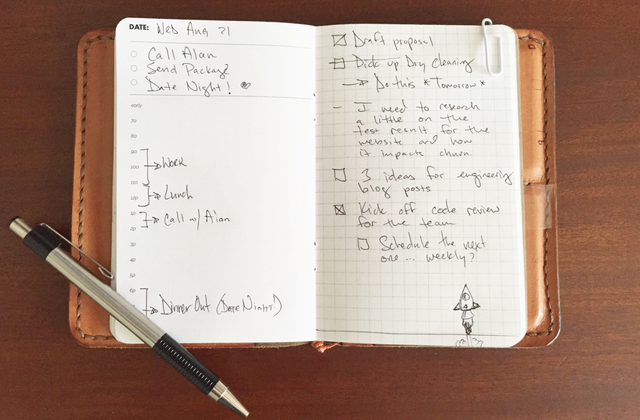 DATE: Wed Aug 31
Call Alan
Send Package
Date Night!
early
7a
8a
9a
10a
→ Work
11a
12p
→ Lunch
1p
2p
→ Call w/ Alan
3p
4p
5p
6p
7p
→ Dinner Out (Date Night)
Draft proposal
Pick up Dry Cleaning
→ Do this *Tomorrow*
– I need to research
a little on the
test result for the
website and how
it impacts churn.
3 ideas for engineering
blog posts
Kick off code review
for the team
Schedule the next
one... weekly?